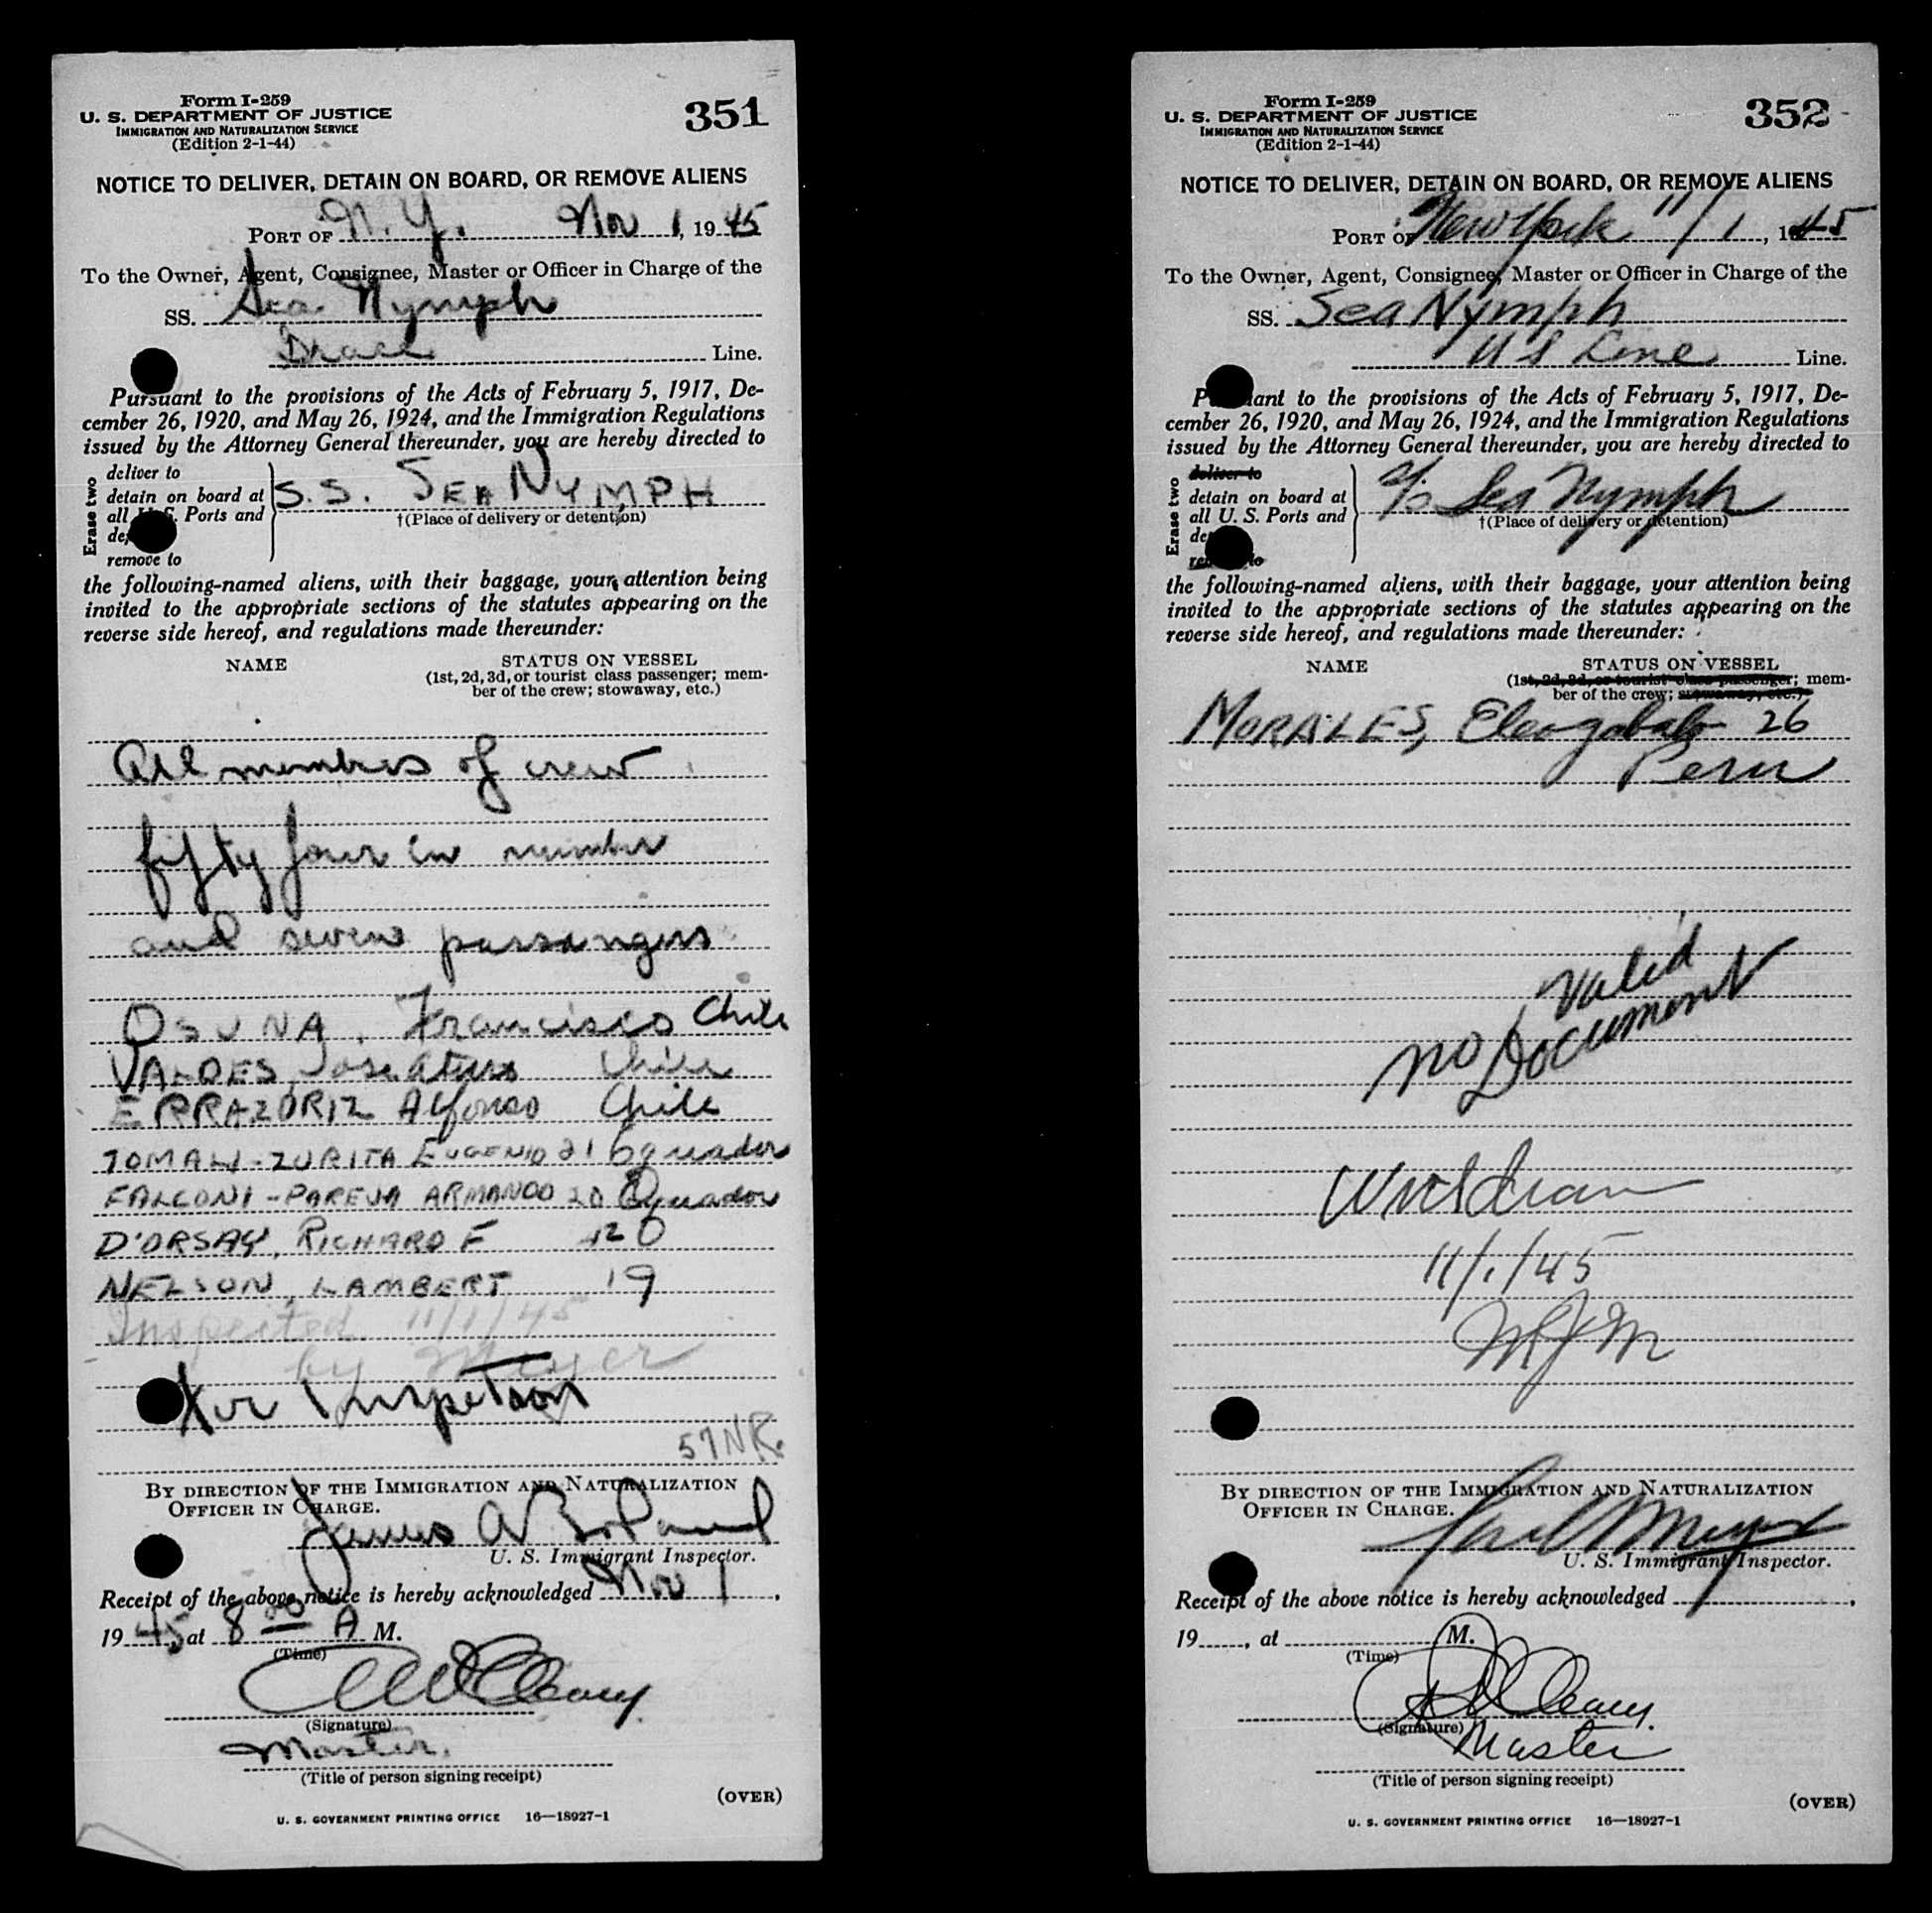 Form I-259
U. S. DEPARTMENT OF JUSTICE
IMMIGRATION AND NATURALIZATION SERVICE
(Edition 2-1-44)
351
NOTICE TO DELIVER, DETAIN ON BOARD, OR REMOVE ALIENS
PORT OF N. Y. Nov 1, 1945
To the Owner, Agent, Consignee, Master or Officer in Charge of the
SS. Sea Nymph
Line.
Pursuant to the provisions of the Acts of February 5, 1917, De-
cember 26, 1920, and May 26, 1924, and the Immigration Regulations
issued by the Attorney General thereunder, you are hereby directed to
Erase two
deliver to
detain on board at
all U.S. Ports and
remove to
S.S. SEA NYMPH
†(Place of delivery or detention)
the following-named aliens, with their baggage, your attention being
invited to the appropriate sections of the statutes appearing on the
reverse side hereof, and regulations made thereunder:
NAME
STATUS ON VESSEL
(1st, 2d, 3d, or tourist class passenger; mem-
ber of the crew; stowaway, etc.)
All members of crew
fifty four in number
and seven passengers
OSUNA, Francisco Chile
VALDES, Jose Chile
ERRAZORIZ Alfonso Chile
ZURITA EUGENIO 21 Equador
FALCONI-PAREJA ARMANDO 20 Equador
D'ORSAY, RICHARD F 20
NELSON, LAMBERT 19
Inspected 11/1/45
by Meyer
for Inspection
57 NR.
BY DIRECTION OF THE IMMIGRATION AND NATURALIZATION
OFFICER IN CHARGE.
James A
U. S. Immigrant Inspector.
Receipt of the above notice is hereby acknowledged Nov 1,
1945, at 8 00 A M.
(Time)
Cleary
(Signature)
Master.
(Title of person signing receipt)
(OVER)
U. S. GOVERNMENT PRINTING OFFICE 16—18927-1
Form I-259
U. S. DEPARTMENT OF JUSTICE
IMMIGRATION AND NATURALIZATION SERVICE
(Edition 2-1-44)
352
NOTICE TO DELIVER, DETAIN ON BOARD, OR REMOVE ALIENS
PORT OF New York 11/1, 1945
To the Owner, Agent, Consignee, Master or Officer in Charge of the
SS. Sea Nymph
U S Line Line.
Pursuant to the provisions of the Acts of February 5, 1917, De-
cember 26, 1920, and May 26, 1924, and the Immigration Regulations
issued by the Attorney General thereunder, you are hereby directed to
Erase two
deliver to
detain on board at
all U. S. Ports and
remove to
Sea Nymph
†(Place of delivery or detention)
the following-named aliens, with their baggage, your attention being
invited to the appropriate sections of the statutes appearing on the
reverse side hereof, and regulations made thereunder:
NAME
STATUS ON VESSEL
(1st, 2d, 3d, or tourist class passenger; mem-
ber of the crew; stowaway, etc.)
MORALES, Eleogabalo 26
Peru
no valid
Document
11/1/45
MJM
BY DIRECTION OF THE IMMIGRATION AND NATURALIZATION
OFFICER IN CHARGE.
Meyer
U. S. Immigrant Inspector.
Receipt of the above notice is hereby acknowledged
19 , at M.
(Time)
Cleary.
(Signature)
Master
(Title of person signing receipt)
(OVER)
U. S. GOVERNMENT PRINTING OFFICE 16—18927-1